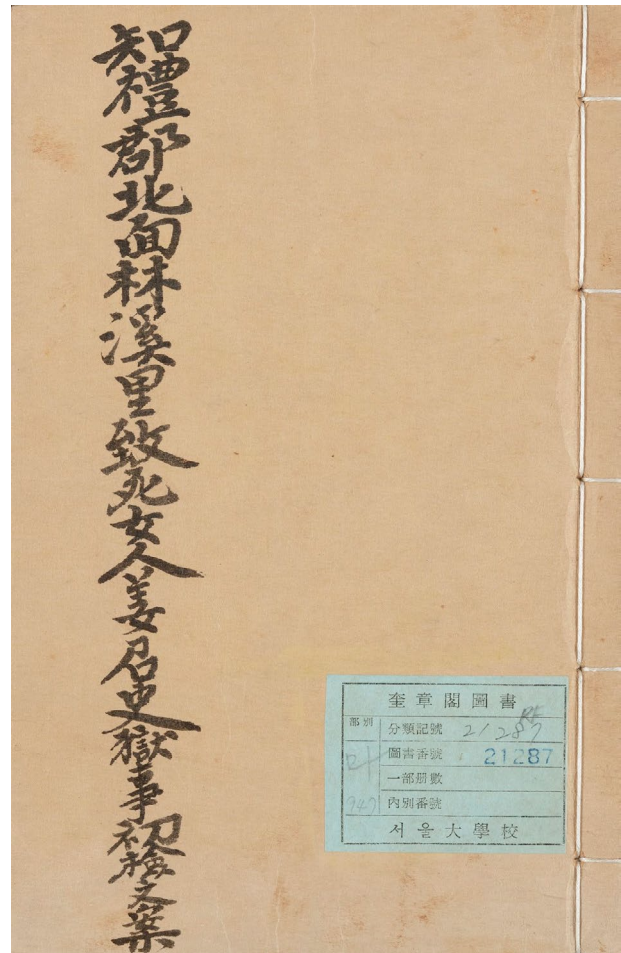 知禮郡北面林溪里致死女人姜召史獄事初檢文案
奎章閣圖書
部別
分類記號 21287
圖書番號 21287
一部册數
內別番號
서울大學校